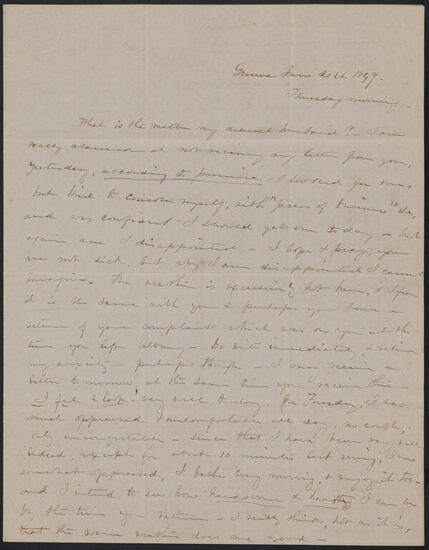 Geneva June 21st 1849.
Thursday morning.
What is the matter my dearest husband? - I am
really alarmed at not receiving any letter from you,
yesterday, according to promise, I looked for one,
but tried to console myself, with "press of business" &c,
and was confident I should get one to day - but
again am I disappointed - I hope & pray, you
are not sick, but why I am disappointed I cannot
imagine. The weather is excessively hot here, & I fear
it is the same with you & perhaps you have a
return of your complaint which was on you at the
time you left Albany - Do write immediately & relieve
my anxiety - perhaps though - I may receive a
letter tomorrow, at the same time you receive this -
I feel & look! very well to day. On Tuesday, I was
much oppressed & uncomfortable all day, no cough,
only uncomfortable - since that I have been very well
indeed, except for about 10 minutes last evening, I was
somewhat oppressed, I bathe every morning, & every night too -
and I intend to see how handsome & healthy I can be
by the time you return - I really think, hot as it is,
that the warm weather does me good -